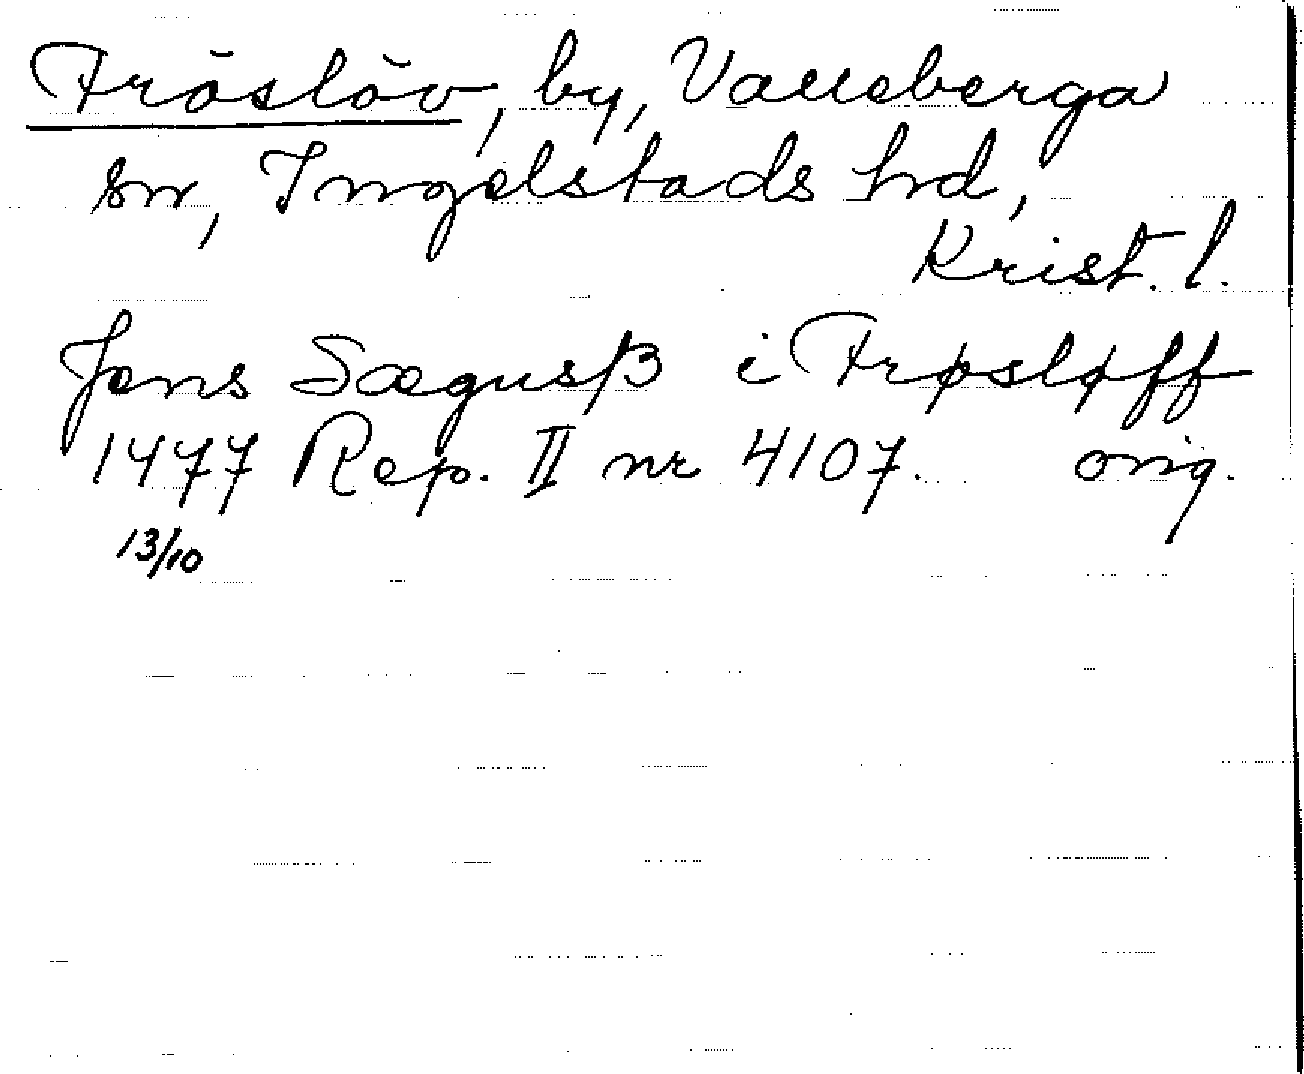 Fröslöv, by, Valleberga
sn, Ingelstads hd,
Krist. l.
Jens Sægusß i Frøsløff
1477 Rep. II nr 4107. orig.
13/10